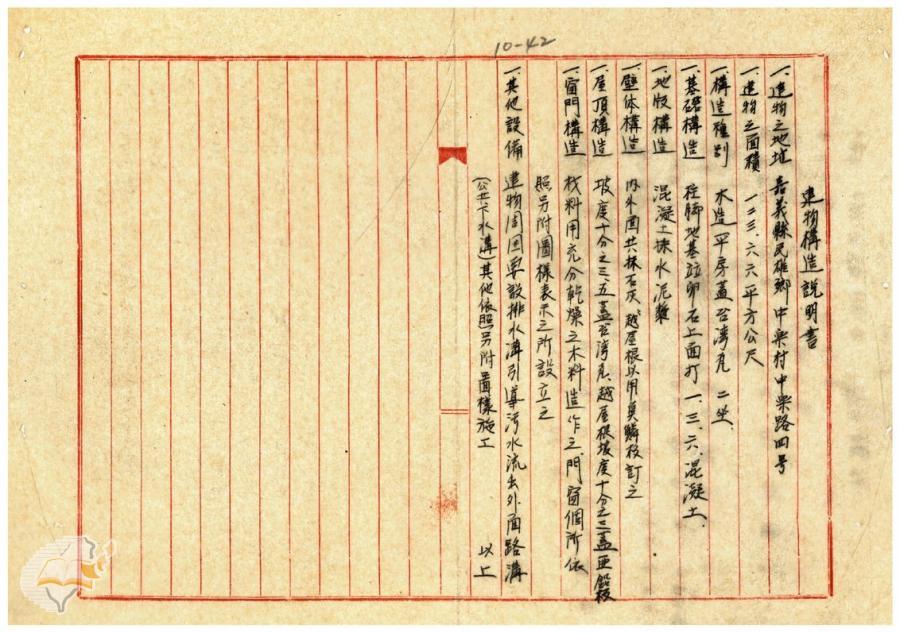 10-42
建物構造說明書
一、建物之地址 嘉義縣民雄鄉中樂村中樂路四号
一、建物之面積 一二三.六六平方公尺
一、構造種別 木造平房蓋台湾瓦 二坐.
一、基礎構造 柱脚地基竝卵石上面打一.三.六.混凝土.
一、地板構造 混凝土抹水泥漿
一、壁体構造 内外因共抹石灰、越屋根以用魚鱗板訂之
一、屋頂構造 坡度十分之三.五蓋台湾瓦、越屋根坡度十分之三蓋亜鉛板
一、窗門構造 材料用充分乾燥之木料造作之、門窗個所依
照另附圖樣表示之所設立之
一、其他設備 建物周囲要設排水溝引導污水流出外面路溝
(公共下水溝)其他依照另附圖樣施工
以上